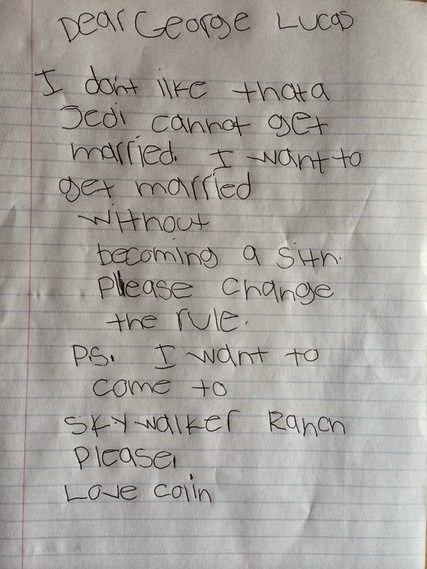 Dear George Lucas
I don't like that a
Jedi cannot get
married. I want to
get married
without
becoming a sith.
Please change
the rule.
P.S. I want to
come to
Skywalker Ranch
Please.
Love Colin